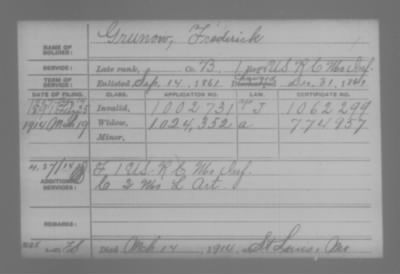 Grunow, Frederick
NAME OF SOLDIER:
SERVICE: Late rank, Co. B, 1 US R C Mo Inf.
TERM OF SERVICE: Enlisted Sep. 14, 1861 Discharged Dec. 31, 1861
DATE OF FILING. CLASS. APPLICATION NO. LAW. CERTIFICATE NO.
Invalid, 1002731 J 1062299
1914 Mch 19 Widow, 1024,352 a 774957
Minor,
ADDITIONAL SERVICES: F 1 US R C Mo Inf.
C 2 Mo L Art.
REMARKS:
Died Mch 14, 1914, St Louis, Mo